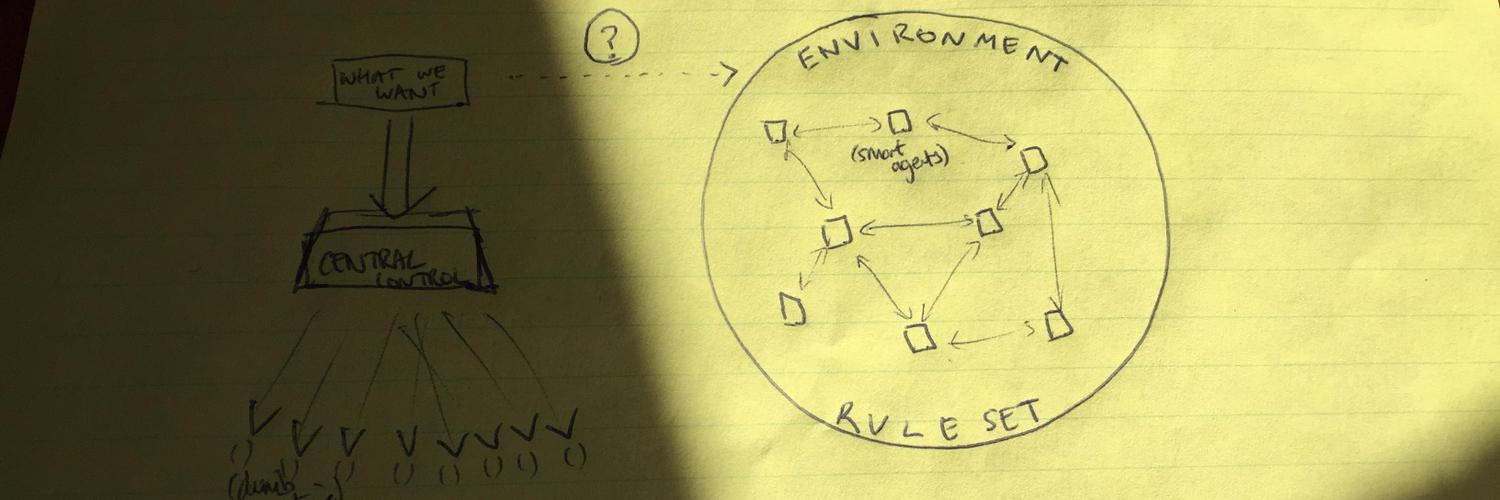 WHAT WE
WANT
CENTRAL
CONTROL
(dumb
?
ENVIRONMENT
(smart
agents)
RULE SET